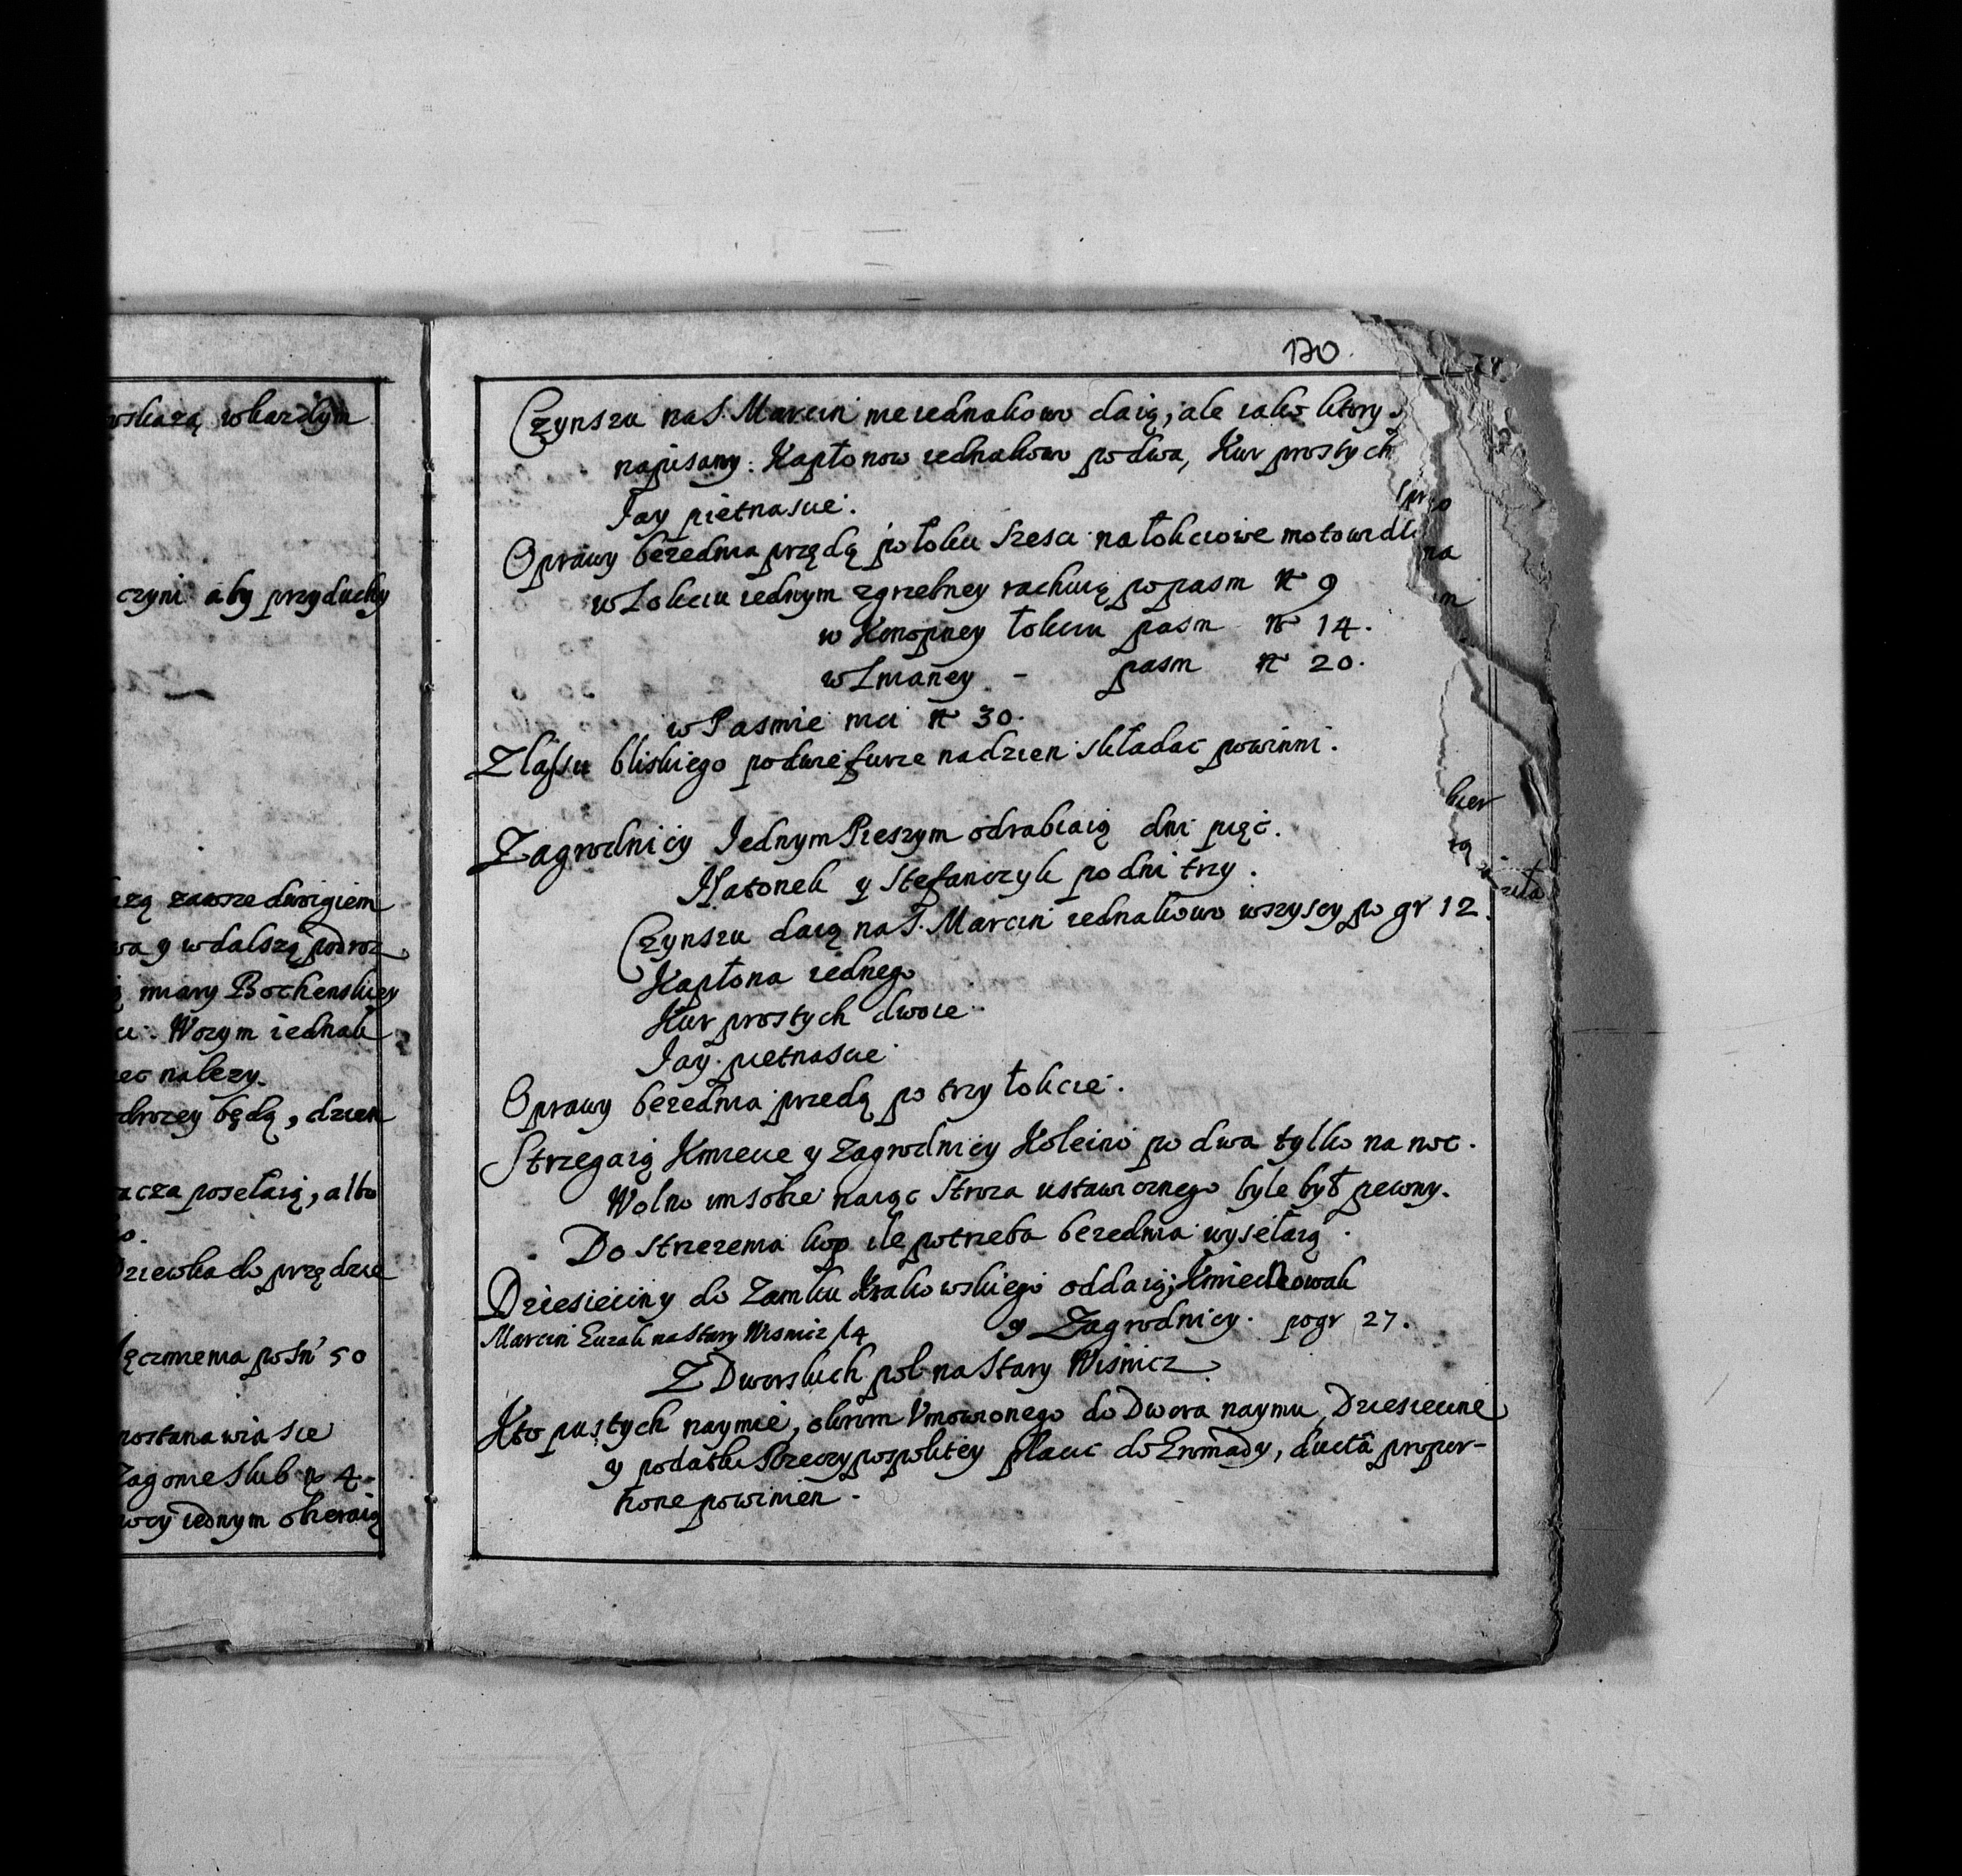 wskażą wkażdym
czyni aby przyduchy
zawsze dwigiem
wa y wdalszą podroz
miary Bochenskiey
Wozym iednak
nalezy.
drozey będą, dzien
posełaią, albo
Dziewka do przędzie
ięczmienia po śn 50
postanawia sie
Zagonie Slub 4
iednym obieraią
170.
Czynszu na S. Marcin nieiednakowo daią, ale iako ktory
napisany. Kapłonow iednakowo po dwa, Kur prostych
Jay piętnascie.
Oprawy bezednia przędą po łokci szesci na łokciowe motowidł
na
w Łokciu iednym zgrzebney rachuią po pasm N 9
w Konopney łokciu pasm N 14.
w Lnianey - pasm N 20.
w Pasmie nici N 30.
Z lassu bliskiego po dwie furze na dzien składac powinni.
Zagrodnicy Jednym Pieszym odrabiaią dni pięć.
y Stefanczyk po dni trzy.
Czynszu daią na S. Marcin iednakowo wszyscy po gr 12.
Kapłona iednego
Kur prostych dwoie
Jay piętnascie
Oprawy bezednia przedą po trzy łokcie.
Strzegaią Kmiecie y Zagrodnicy Koleino po dwa tylko na noc.
Wolno im sobie naiąc stroza ustawicznego byle był pewny.
Do strzezenia kop ile potrzeba bezednia wysełaią.
Dziesięciny do Zamku Krakowskiego oddaią; Kmiec Nowak
Marcin na Stary Wisnicz f 4
y Zagrodnicy. po gr 27.
Z Dworskich pol na Stary Wisnicz
Kto pustych naymie, okrom Vmowionego do Dwora naymu, Dziesiecine
y podatki Rzeczypospolitey płacic do Gromady, ducta propor-
tione powinien.